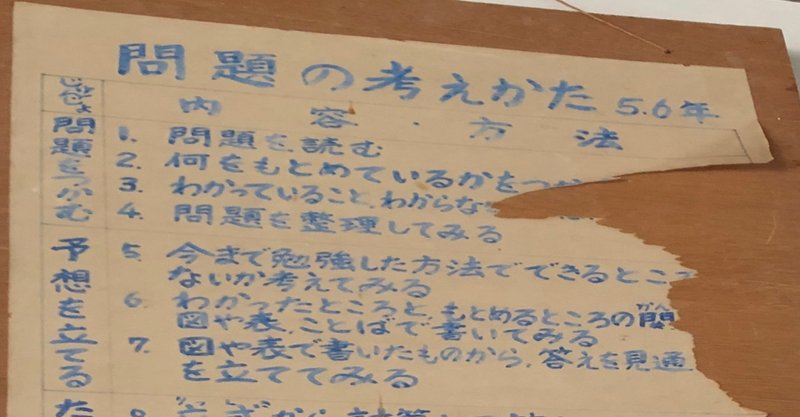 問題の考えかた 5.6年
内容・方法
問題を
1. 問題を読む
2. 何をもとめているかをつ
3. わかっていること、わからな
4. 問題を整理してみる
予想を立てる
5. 今まで勉強した方法でできるところ
ないか考えてみる
6. わかったところと、もとめるところの関
図や表、ことばで書いてみる
7. 図や表で書いたものから、答えを見通
を立ててみる
た